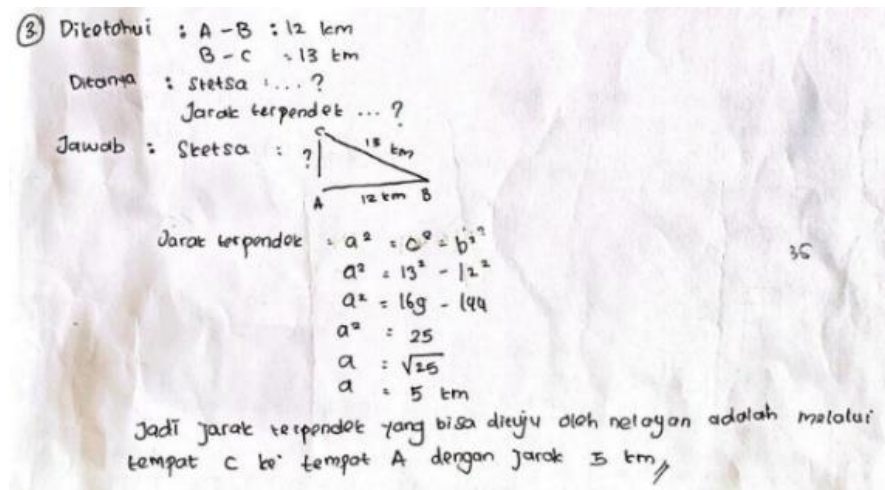 ③ Diketahui : A - B : 12 km
B - C : 13 km
Ditanya : Sketsa : ... ?
Jarak terpendek ... ?
Jawab : Sketsa :
C
? 13 km
A 12 km B
Jarak terpendek : a² = c² - b²
a² = 13² - 12²
a² = 169 - 144
a² = 25
a = √25
a = 5 km
35
Jadi jarak terpendek yang bisa dituju oleh nelayan adalah melalui
tempat C ke tempat A dengan jarak 5 km //